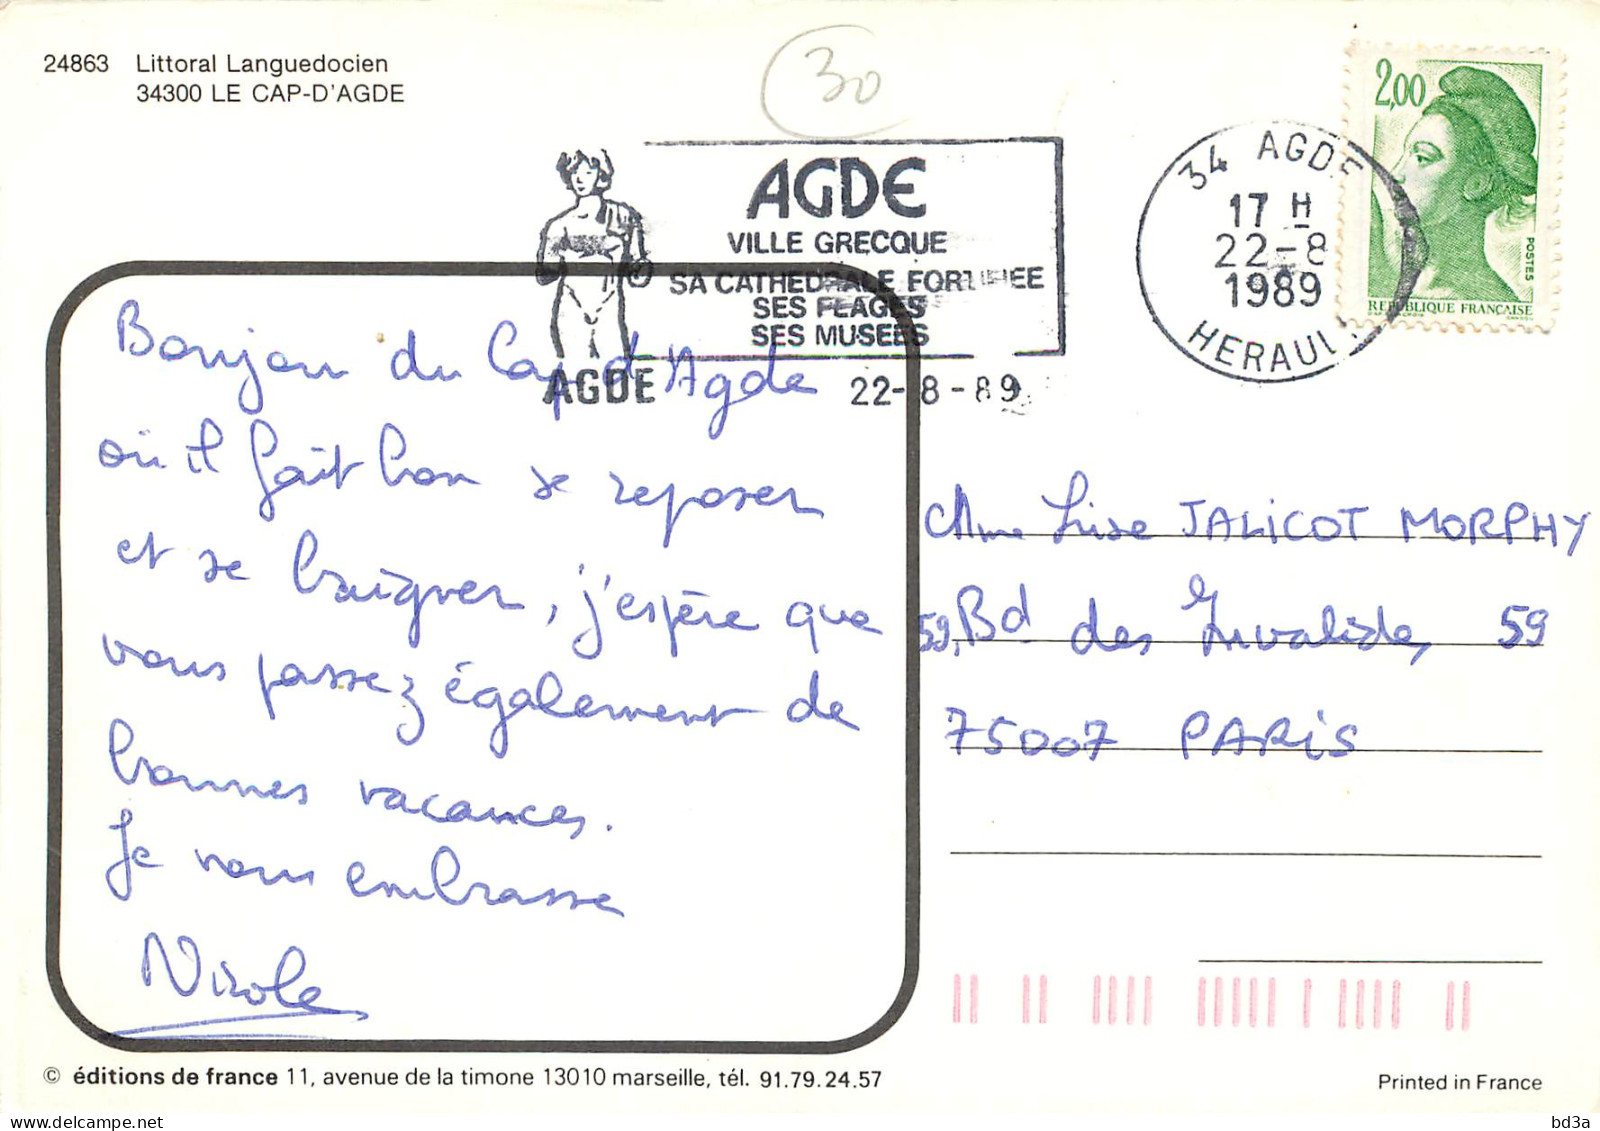 24863 Littoral Languedocien
34300 LE CAP-D'AGDE
30
AGDE
VILLE GRECQUE
SA CATHEDRALE FORTIFIEE
SES PLAGES
SES MUSEES
AGDE
22-8-89
34 AGDE
17 H
22-8
1989
HERAULT
2,00
POSTES
REPUBLIQUE FRANÇAISE
Bonjour du Cap d'Agde
où il fait bon se reposer
et se baigner, j'espère que
vous passez également de
bonnes vacances.
Je vous embrasse
Nicole
Mme Lise JALICOT MORPHY
59, Bd des Invalides 59
75007 PARIS
© éditions de france 11, avenue de la timone 13010 marseille, tél. 91.79.24.57
Printed in France
bd3a